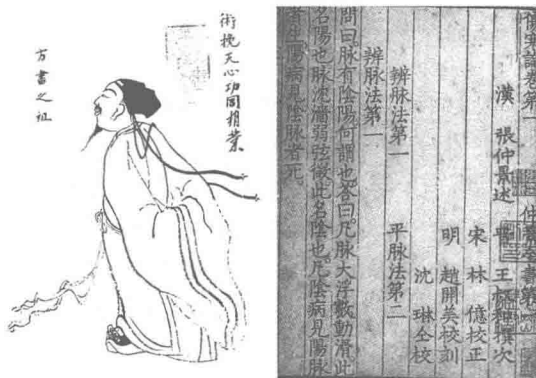 術挽天心功同相業
方書之祖
傷寒論卷第一 仲景全書第
漢 張仲景述 晉 王叔和撰次
宋 林 億校正
明 趙開美校刻
沈 琳仝校
辨脉法第一 平脉法第二
辨脉法第一
問曰。脉有陰陽何謂也。答曰。凡脉大浮數動滑此
名陽也脉沈濇弱弦微此名陰也。凡陰病見陽脉
者生陽病見陰脉者死。